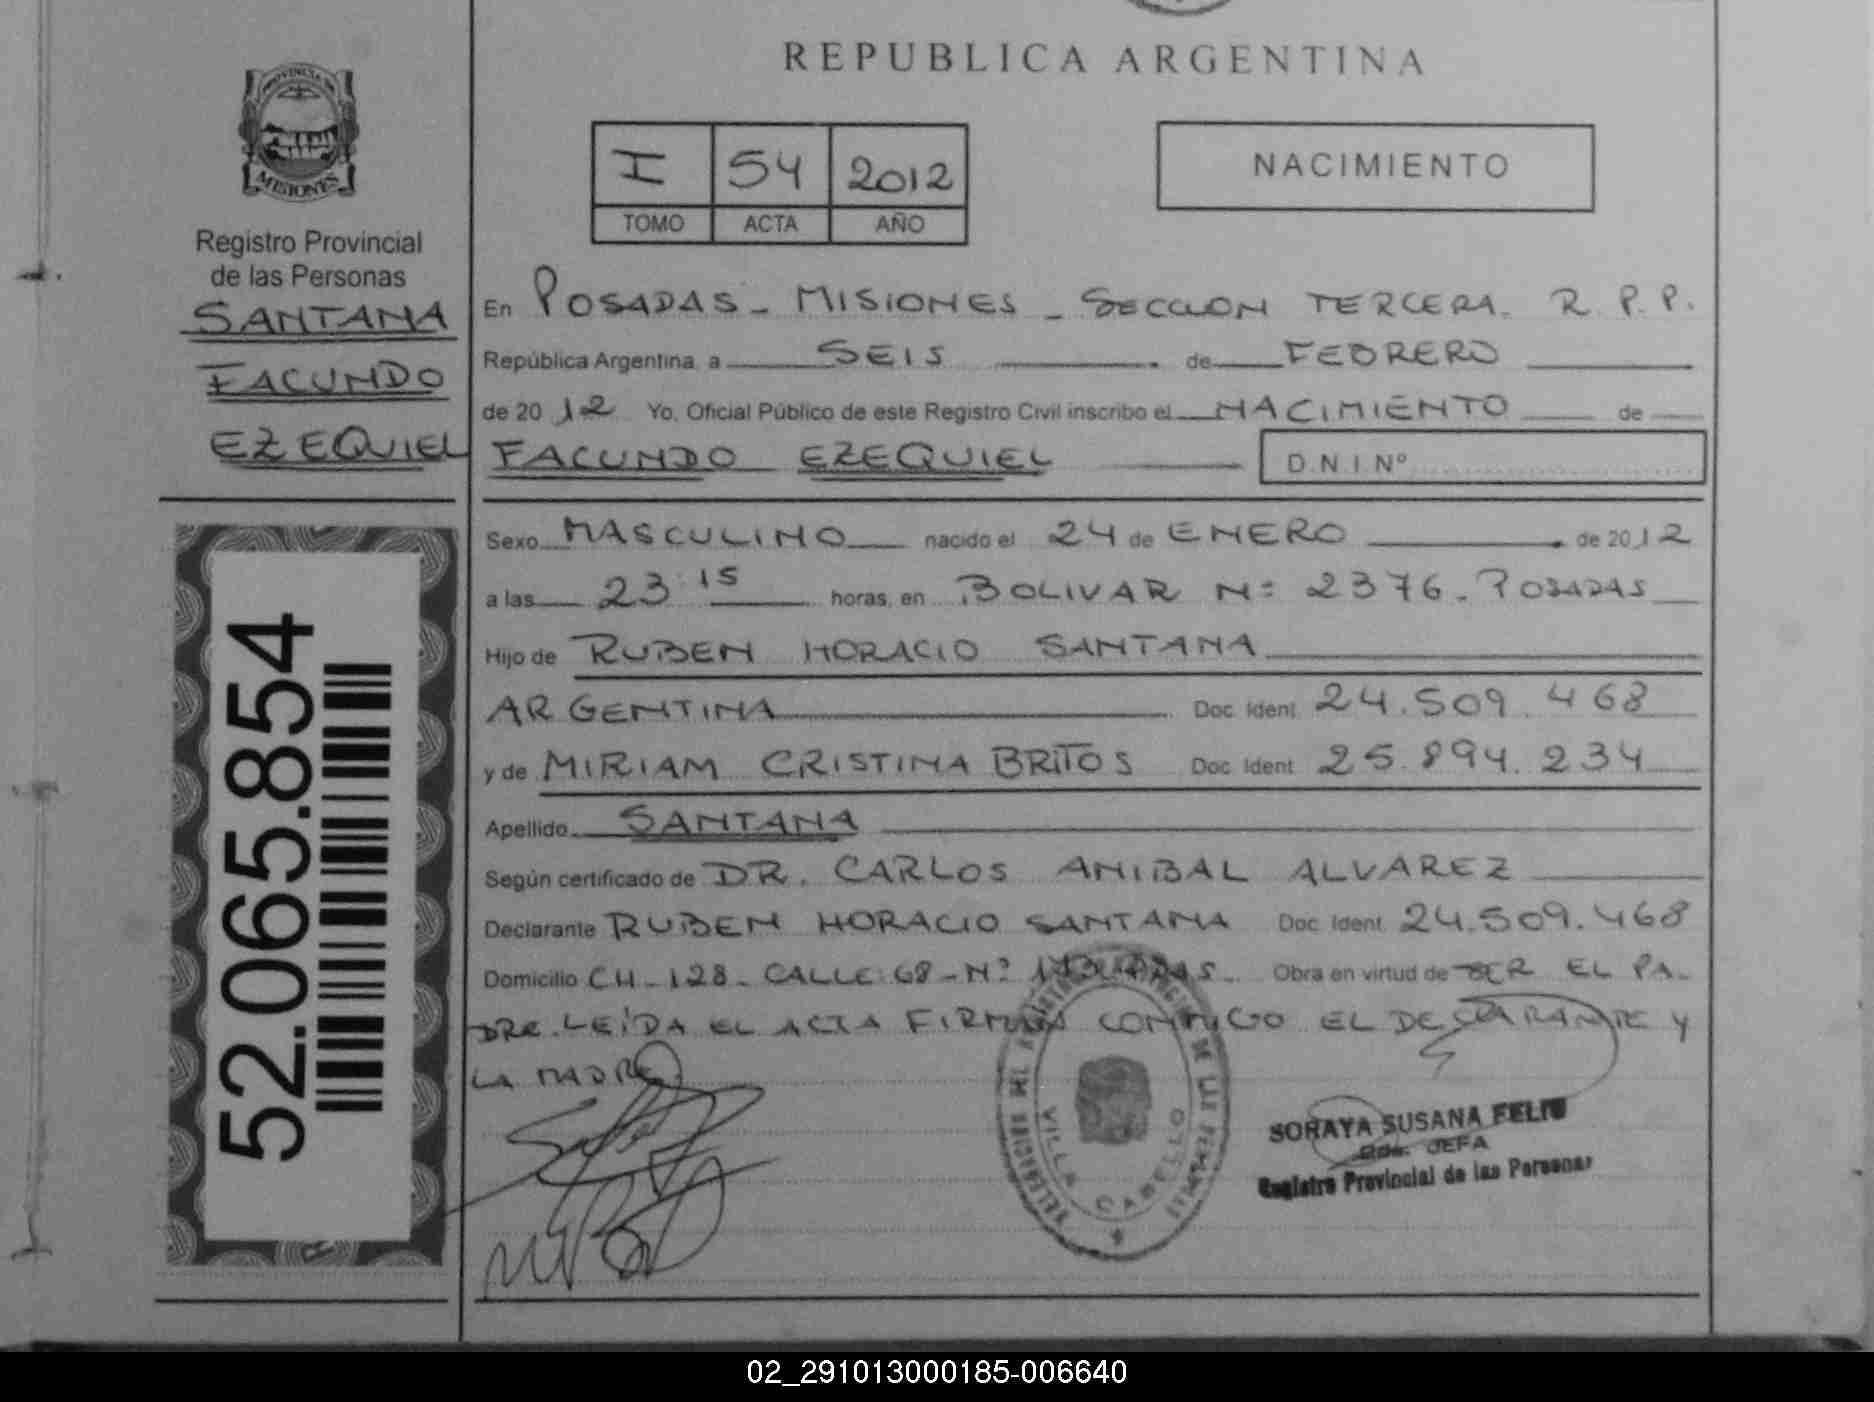 REPUBLICA ARGENTINA
PROVINCIA DE
MISIONES
Registro Provincial
de las Personas
SANTANA
FACUNDO
EZEQUIEL
52.065.854
I 54 2012
TOMO ACTA AÑO
NACIMIENTO
En POSADAS - MISIONES - SECCION TERCERA. R.P.P.
República Argentina, a SEIS de FEBRERO
de 2012 Yo, Oficial Público de este Registro Civil inscribo el NACIMIENTO de
FACUNDO EZEQUIEL D.N.I. Nº
Sexo MASCULINO nacido el 24 de ENERO de 2012
a las 23:15 horas, en BOLIVAR Nº 2376. POSADAS
Hijo de RUBEN HORACIO SANTANA
ARGENTINA Doc. Ident. 24.509.468
y de MIRIAM CRISTINA BRITOS Doc. Ident. 25.894.234
Apellido SANTANA
Según certificado de DR. CARLOS ANIBAL ALVAREZ
Declarante RUBEN HORACIO SANTANA Doc. Ident. 24.509.468
Domicilio CH-128-CALLE:68-Nº Obra en virtud de SER EL PA-
DRE. LEÍDA EL ACTA FIRMAN CONMIGO EL DECLARANTE Y
LA MADRE
VILLA CABELLO
SORAYA SUSANA FELIU
JEFA
Registro Provincial de las Personas
02_291013000185-006640